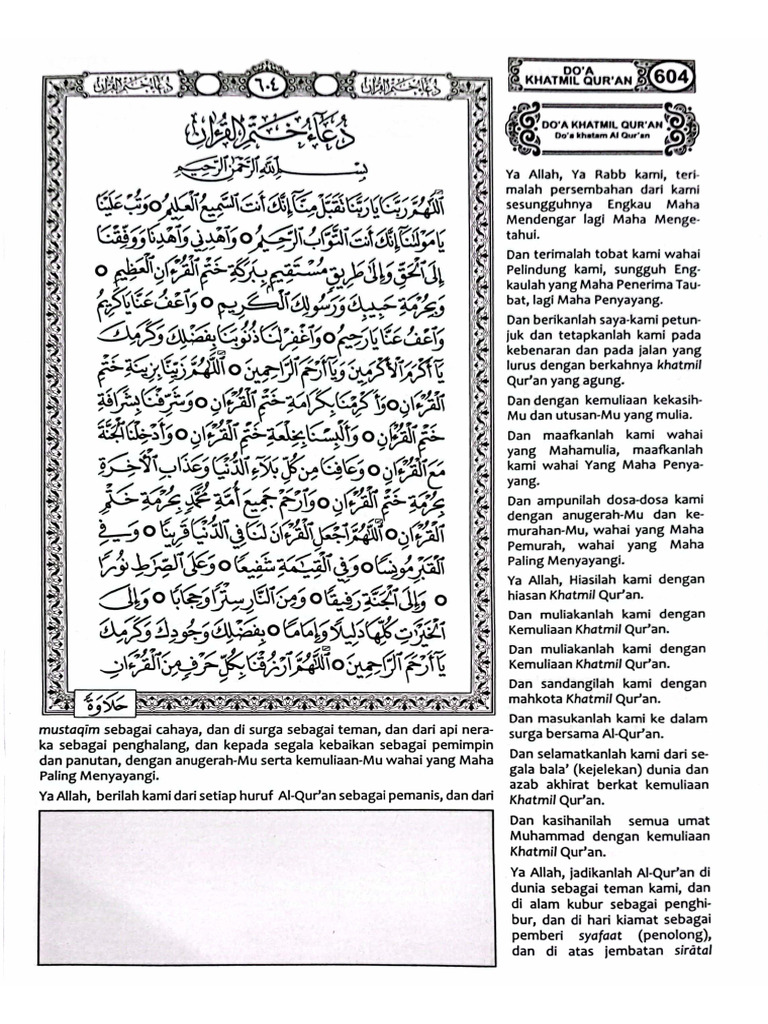 دُعَاءُ خَتْمِ الْقُرْءَانِ
٦٠٤
دُعَاءُ خَتْمِ الْقُرْءَانِ
دُعَاءُ خَتْمِ الْقُرْءَانِ
بِسْمِ اللهِ الرَّحْمٰنِ الرَّحِيْمِ
اَللّٰهُمَّ رَبَّنَا يَا رَبَّنَا تَقَبَّلْ مِنَّا إِنَّكَ أَنْتَ السَّمِيْعُ الْعَلِيْمُ ○ وَتُبْ عَلَيْنَا
يَا مَوْلٰنَا إِنَّكَ أَنْتَ التَّوَّابُ الرَّحِيْمُ ○ وَاهْدِنِي وَاهْدِنَا وَوَفِّقْنَا
إِلَى الْحَقِّ وَإِلَى طَرِيْقٍ مُسْتَقِيْمٍ بِبَرَكَةِ خَتْمِ الْقُرْءَانِ الْعَظِيْمِ ○
وَبِحُرْمَةِ حَبِيْبِكَ وَرَسُوْلِكَ الْكَرِيْمِ ○ وَاعْفُ عَنَّا يَا كَرِيْمُ
وَاعْفُ عَنَّا يَا رَحِيْمُ ○ وَاغْفِرْ لَنَا ذُنُوْبَنَا بِفَضْلِكَ وَكَرَمِكَ
يَا أَكْرَمَ الْأَكْرَمِيْنَ وَيَا أَرْحَمَ الرَّاحِمِيْنَ ○ اَللّٰهُمَّ زَيِّنَّا بِزِيْنَةِ خَتْمِ
الْقُرْءَانِ ○ وَأَكْرِمْنَا بِكَرَامَةِ خَتْمِ الْقُرْءَانِ ○ وَشَرِّفْنَا بِشَرَافَةِ
خَتْمِ الْقُرْءَانِ ○ وَأَلْبِسْنَا بِخِلْعَةِ خَتْمِ الْقُرْءَانِ ○ وَأَدْخِلْنَا الْجَنَّةَ
مَعَ الْقُرْءَانِ ○ وَعَافِنَا مِنْ كُلِّ بَلَاءِ الدُّنْيَا وَعَذَابِ الْأٰخِرَةِ
بِحُرْمَةِ خَتْمِ الْقُرْءَانِ ○ وَارْحَمْ جَمِيْعَ أُمَّةِ مُحَمَّدٍ بِحُرْمَةِ خَتْمِ
الْقُرْءَانِ ○ اَللّٰهُمَّ اجْعَلِ الْقُرْءَانَ لَنَا فِي الدُّنْيَا قَرِيْنًا ○ وَفِي
الْقَبْرِ مُوْنِسًا ○ وَفِي الْقِيٰمَةِ شَفِيْعًا ○ وَعَلَى الصِّرَاطِ نُوْرًا
○ وَإِلَى الْجَنَّةِ رَفِيْقًا ○ وَمِنَ النَّارِ سِتْرًا وَحِجَابًا ○ وَإِلَى
الْخَيْرَاتِ كُلِّهَا دَلِيْلًا وَإِمَامًا ○ بِفَضْلِكَ وَجُوْدِكَ وَكَرَمِكَ
يَا أَرْحَمَ الرَّاحِمِيْنَ ○ اَللّٰهُمَّ ارْزُقْنَا بِكُلِّ حَرْفٍ مِنَ الْقُرْءَانِ
حَلَاوَةً
DO'A
KHATMIL QUR'AN
604
DO'A KHATMIL QUR'AN
Do'a khatam Al Qur'an
Ya Allah, Ya Rabb kami, teri-
malah persembahan dari kami
sesungguhnya Engkau Maha
Mendengar lagi Maha Menge-
tahui.
Dan terimalah tobat kami wahai
Pelindung kami, sungguh Eng-
kaulah yang Maha Penerima Tau-
bat, lagi Maha Penyayang.
Dan berikanlah saya-kami petun-
juk dan tetapkanlah kami pada
kebenaran dan pada jalan yang
lurus dengan berkahnya khatmil
Qur'an yang agung.
Dan dengan kemuliaan kekasih-
Mu dan utusan-Mu yang mulia.
Dan maafkanlah kami wahai
yang Mahamulia, maafkanlah
kami wahai Yang Maha Penya-
yang.
Dan ampunilah dosa-dosa kami
dengan anugerah-Mu dan ke-
murahan-Mu, wahai yang Maha
Pemurah, wahai yang Maha
Paling Menyayangi.
Ya Allah, Hiasilah kami dengan
hiasan Khatmil Qur'an.
Dan muliakanlah kami dengan
Kemuliaan Khatmil Qur'an.
Dan muliakanlah kami dengan
Kemuliaan Khatmil Qur'an.
Dan sandangilah kami dengan
mahkota Khatmil Qur'an.
Dan masukanlah kami ke dalam
surga bersama Al-Qur'an.
Dan selamatkanlah kami dari se-
gala bala' (kejelekan) dunia dan
azab akhirat berkat kemuliaan
Khatmil Qur'an.
Dan kasihanilah semua umat
Muhammad dengan kemuliaan
Khatmil Qur'an.
Ya Allah, jadikanlah Al-Qur'an di
dunia sebagai teman kami, dan
di alam kubur sebagai penghi-
bur, dan di hari kiamat sebagai
pemberi syafaat (penolong),
dan di atas jembatan sirâtal
mustaqîm sebagai cahaya, dan di surga sebagai teman, dan dari api nera-
ka sebagai penghalang, dan kepada segala kebaikan sebagai pemimpin
dan panutan, dengan anugerah-Mu serta kemuliaan-Mu wahai yang Maha
Paling Menyayangi.
Ya Allah, berilah kami dari setiap huruf Al-Qur'an sebagai pemanis, dan dari